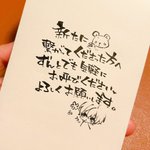 新たに
繋がてくださった方へ
ずんとでも気軽に
お呼びください
よろしくお願いします。